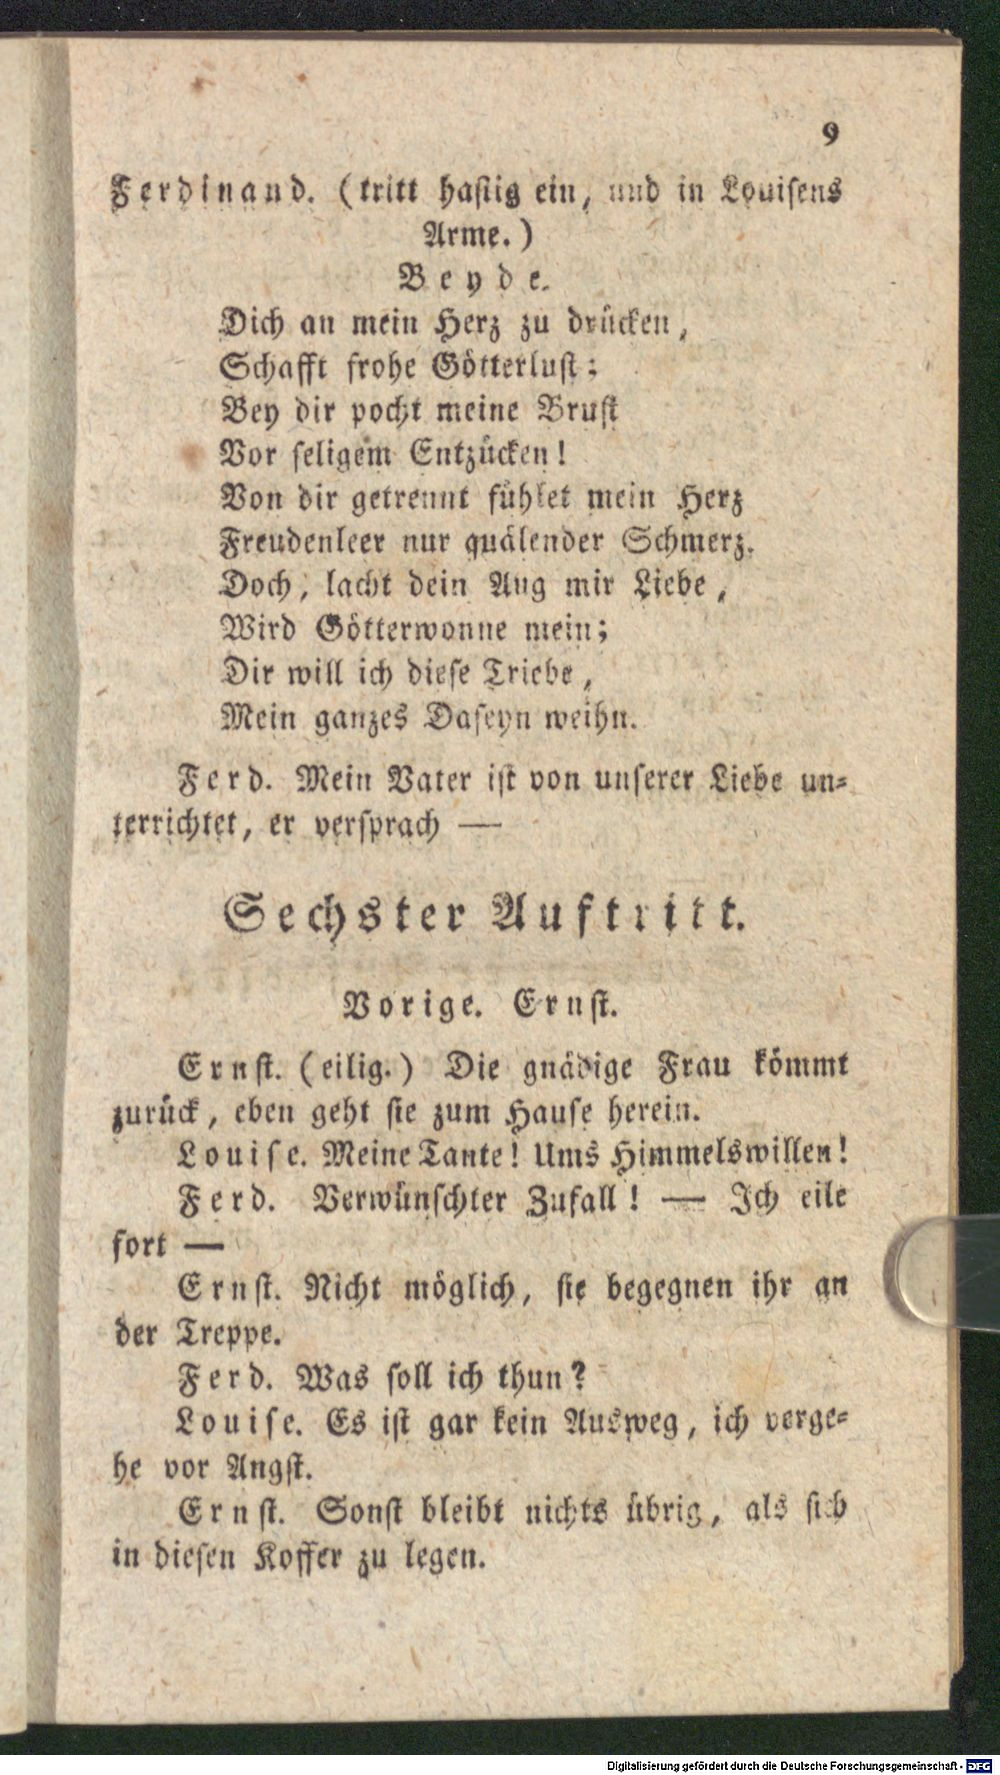 9
Ferdinand. (tritt hastig ein, und in Louisens
Arme.)
Beyde.
Dich an mein Herz zu drücken,
Schafft frohe Götterlust:
Bey dir pocht meine Brust
Vor seligem Entzücken!
Von dir getrennt fühlet mein Herz
Freudenleer nur quälender Schmerz.
Doch, lacht dein Aug mir Liebe,
Wird Götterwonne mein;
Dir will ich diese Triebe,
Mein ganzes Daseyn weihn.
Ferd. Mein Vater ist von unserer Liebe un-
terrichtet, er versprach —
Sechster Auftritt.
Vorige. Ernst.
Ernst. (eilig.) Die gnädige Frau kömmt
zurück, eben geht sie zum Hause herein.
Louise. Meine Tante! Ums Himmelswillen!
Ferd. Verwünschter Zufall! — Ich eile
fort —
Ernst. Nicht möglich, sie begegnen ihr an
der Treppe.
Ferd. Was soll ich thun?
Louise. Es ist gar kein Ausweg, ich verge-
he vor Angst.
Ernst. Sonst bleibt nichts übrig, als sich
in diesen Koffer zu legen.
Digitalisierung gefördert durch die Deutsche Forschungsgemeinschaft - DFG